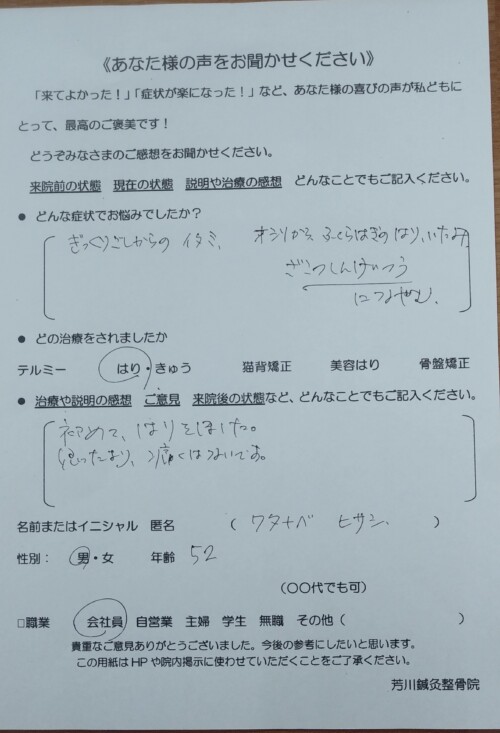 《あなた様の声をお聞かせください》
「来てよかった！」「症状が楽になった！」など、あなた様の喜びの声が私どもに
とって、最高のご褒美です！
どうぞみなさまのご感想をお聞かせください。
来院前の状態　現在の状態　説明や治療の感想　どんなことでもご記入ください。
● どんな症状でお悩みでしたか？
ぎっくりごしからの イタミ、 オシリから ふくらはぎの はり、いたみ
ざこつしんけいつう
になやむ、
● どの治療をされましたか
テルミー　はり・きゅう　猫背矯正　美容はり　骨盤矯正
● 治療や説明の感想　ご意見　来院後の状態など、どんなことでもご記入ください。
初めて、はりをしました。
思ったより、痛くはないです。
名前またはイニシャル　匿名　（ ワタナベ ヒサシ ）
性別：　男・女　年齢 52
（〇〇代でも可）
□職業　会社員　自営業　主婦　学生　無職　その他（　）
貴重なご意見ありがとうございました。今後の参考にしたいと思います。
この用紙はHPや院内掲示に使わせていただくことをご了承ください。
芳川鍼灸整骨院